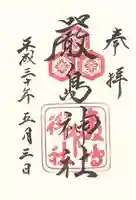 奉拝
嚴島神社
平成三十年五月三日